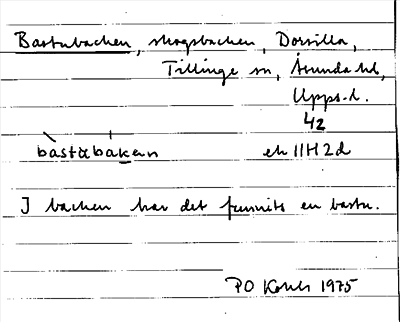 Bastubacken, skogsbacken, Dorsilla,
Tillinge sn, Åsunda hd,
Upps. l.
42
bàstɑbákɛn ek 11H2d
I backen har det funnits en bastu.
PO 1975